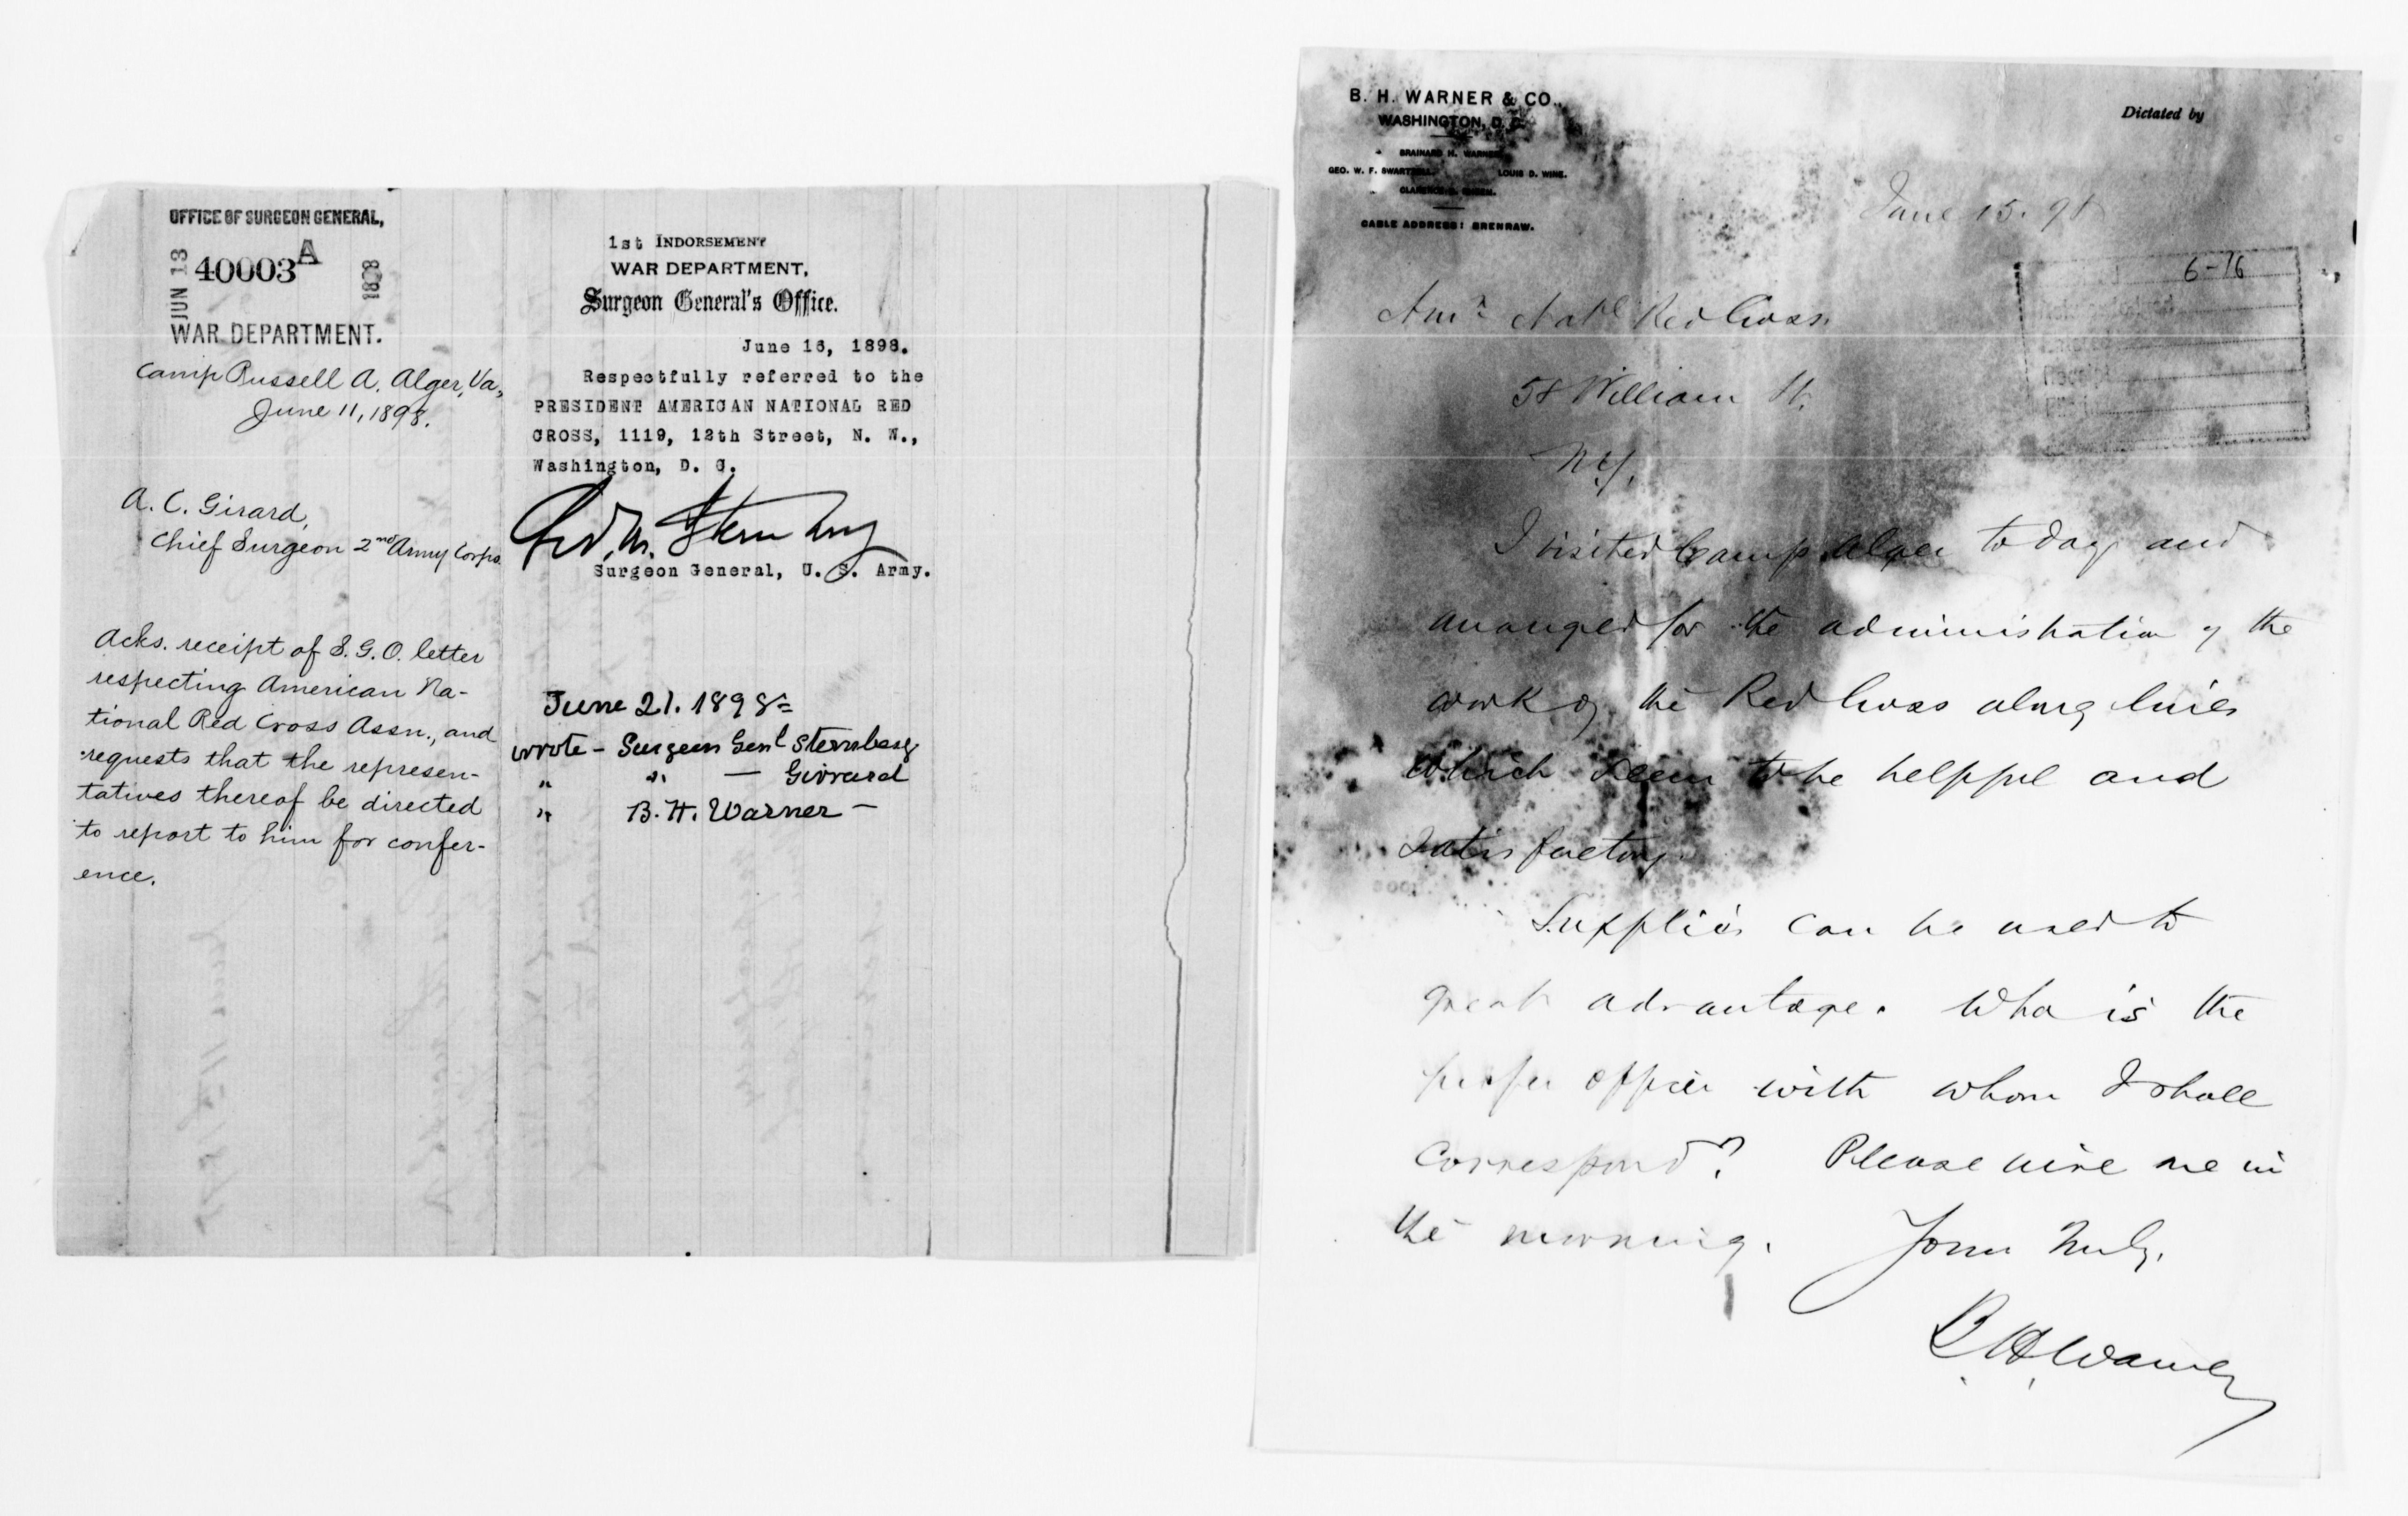 OFFICE OF SURGEON GENERAL,
JUN 13
40003 A
1898
WAR DEPARTMENT.
Camp Russell A. Alger, Va.,
June 11, 1898.
A. C. Girard,
Chief Surgeon 2nd Army Corps.
Acks. receipt of S. G. O. letter
respecting American Na-
tional Red Cross Assn., and
requests that the represen-
tatives thereof be directed
to report to him for confer-
ence.
1st INDORSEMENT
WAR DEPARTMENT,
Surgeon General's Office.
June 16, 1898.
Respectfully referred to the
PRESIDENT AMERICAN NATIONAL RED
CROSS, 1119, 12th Street, N. W.,
Washington, D. C.
Geo. M. Sternberg
Surgeon General, U. S. Army.
June 21. 1898=
wrote - Surgeon Genl Sternberg
" " — Girrard
" B. H. Warner —
B. H. WARNER & CO.,
WASHINGTON, D. C.
BRAINARD H. WARNER
GEO. W. F. SWARTZELL. LOUIS D. WINE.
CABLE ADDRESS: BRENRAW.
Dictated by
June 15. 98
6-16
Amn Natl Red Cross.
58 William St.
N.Y.
I visited Camp Alger to day and
arranged for the administration of the
work of the Red Cross along lines
which seem to be helpful and
satisfactory.
Supplies can be used to
great advantage. Who is the
proper officer with whom I shall
correspond? Please wire me in
the morning. Yours truly,
B H Warner